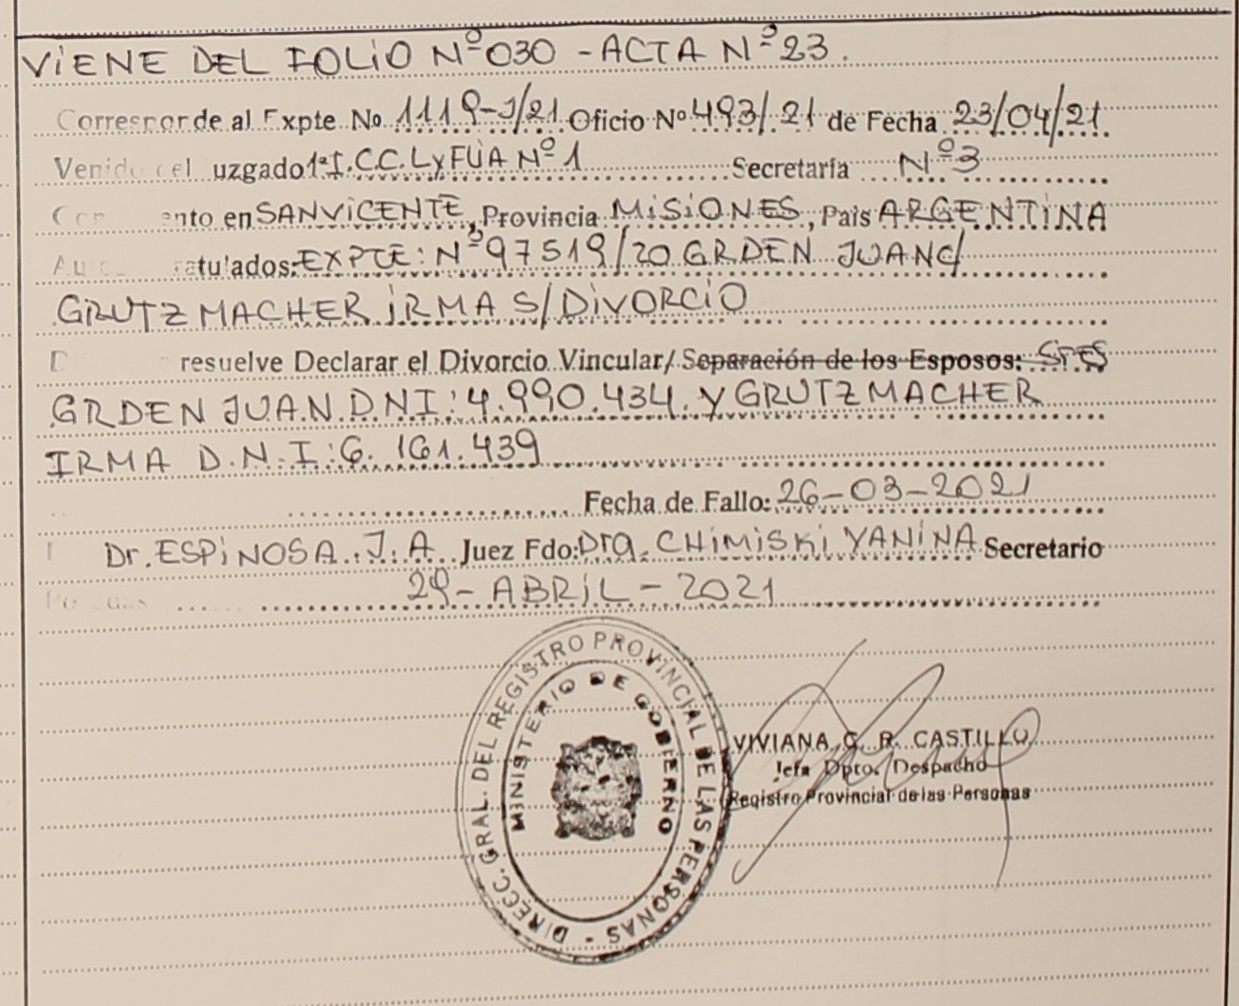 VIENE DEL FOLIO Nº 030 - ACTA Nº 23.
Corresponde al Expte Nº 1119-J/21 Oficio Nº 493/21 de Fecha 23/04/21
Venido del uzgado 1ª I.C.C.L y FLIA Nº 1 Secretaría Nº 3
ento en SAN VICENTE, Provincia MISIONES, País ARGENTINA
Au ratulados: EXPTE: Nº 97519/20 GRDEN JUAN C/
GRUTZMACHER IRMA S/DIVORCIO
resuelve Declarar el Divorcio Vincular/ Separación de los Esposos: SPES
GRDEN JUAN D.N.I: 4.990.434. y GRUTZMACHER
IRMA D.N.I: 6.161.439
Fecha de Fallo: 26-03-2021
Dr. ESPINOSA. J. A Juez Fdo: Dra. CHIMISKI YANINA Secretario
29-ABRIL-2021
DIRECC. GRAL. DEL REGISTRO PROVINCIAL DE LAS PERSONAS -
MINISTERIO DE GOBIERNO
VIVIANA G. R. CASTILLO
Jefa Dpto. Despacho
Registro Provincial de las Personas